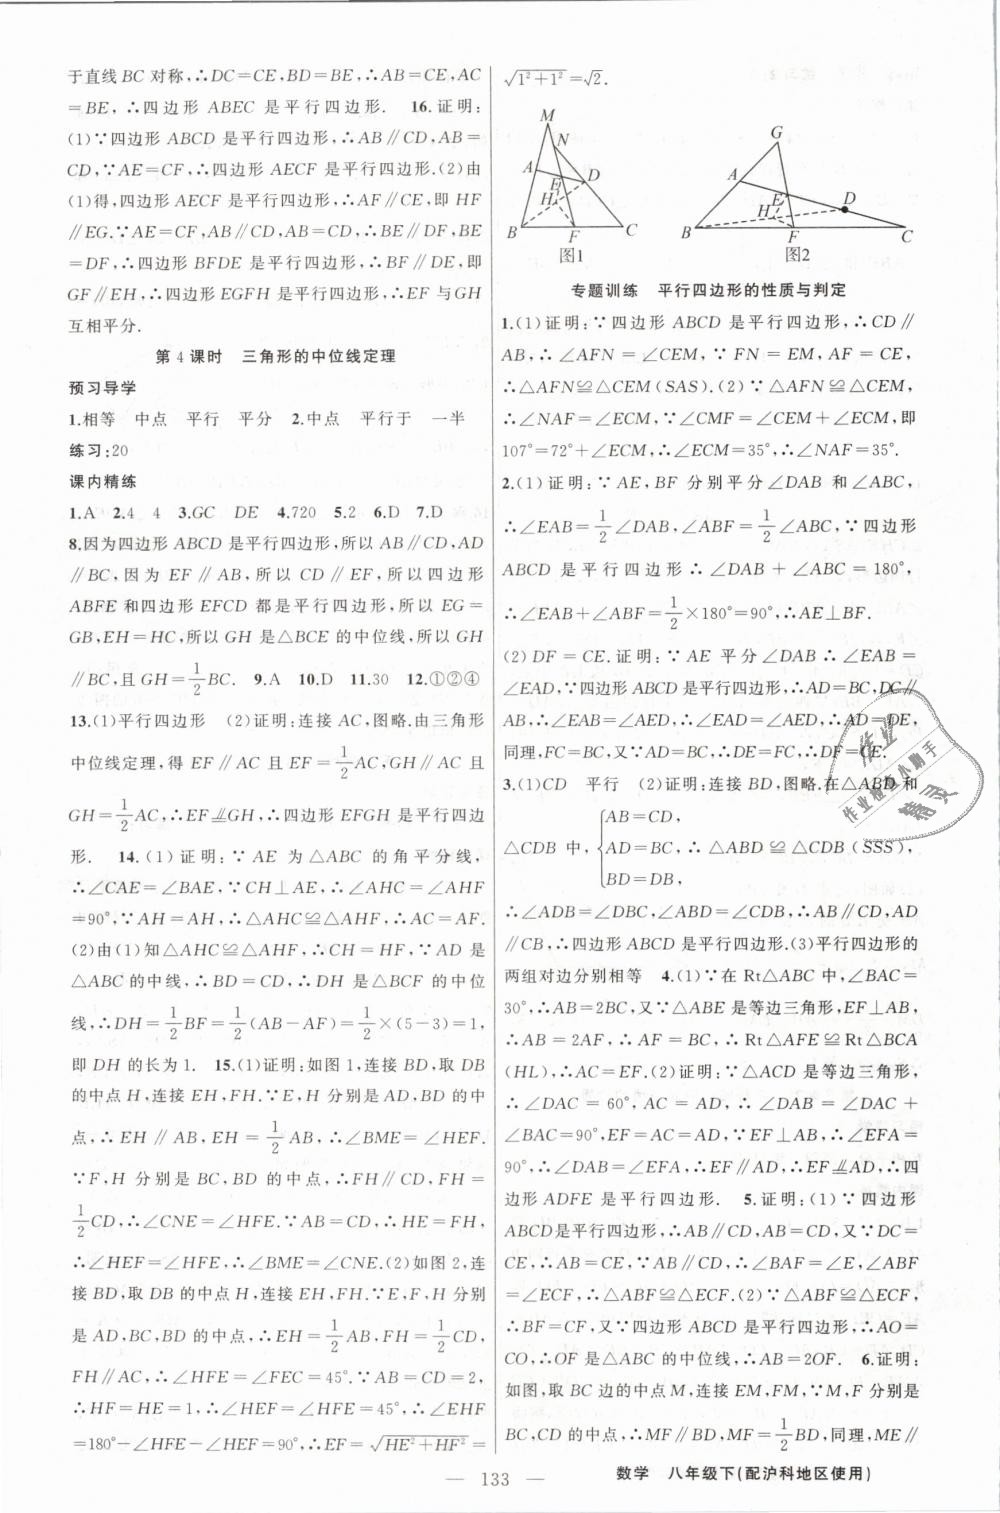 于直线 BC 对称,∴DC=CE,BD=BE,∴AB=CE,AC
=BE,∴四边形 ABEC 是平行四边形. 16.证明:
(1)∵四边形 ABCD 是平行四边形,∴AB∥CD,AB=
CD,∵AE=CF,∴四边形 AECF 是平行四边形.(2)由
(1)得,四边形 AECF 是平行四边形,∴AF∥CE,即 HF
∥EG.∵AE=CF,AB∥CD,AB=CD,∴BE∥DF,BE
=DF,∴四边形 BFDE 是平行四边形,∴BF∥DE,即
GF∥EH,∴四边形 EGFH 是平行四边形,∴EF 与 GH
互相平分.
第 4 课时 三角形的中位线定理
预习导学
1.相等 中点 平行 平分 2.中点 平行于 一半
练习:20
课内精练
1.A 2.4 4 3.GC DE 4.720 5.2 6.D 7.D
8.因为四边形 ABCD 是平行四边形,所以 AB∥CD,AD
∥BC,因为 EF∥AB,所以 CD∥EF,所以四边形
ABFE 和四边形 EFCD 都是平行四边形,所以 EG=
GB,EH=HC,所以 GH 是△BCE 的中位线,所以 GH
∥BC,且 GH=1/2BC. 9.A 10.D 11.30 12.①②④
13.(1)平行四边形 (2)证明:连接 AC,图略.由三角形
中位线定理,得 EF∥AC 且 EF=1/2AC,GH∥AC 且
GH=1/2AC,∴EF∥GH,∴四边形 EFGH 是平行四边
形. 14.(1)证明:∵AE 为△ABC 的角平分线,
∴∠CAE=∠BAE,∵CH⊥AE,∴∠AHC=∠AHF
=90°,∵AH=AH,∴△AHC≌△AHF,∴AC=AF.
(2)由(1)知△AHC≌△AHF,∴CH=HF,∵AD 是
△ABC 的中线,∴BD=CD,∴DH 是△BCF 的中位
线,∴DH=1/2BF=1/2(AB-AF)=1/2×(5-3)=1,
即 DH 的长为 1. 15.(1)证明:如图 1,连接 BD,取 DB
的中点 H,连接 EH,FH.∵E,H 分别是 AD,BD 的中
点,∴EH∥AB,EH=1/2AB,∴∠BME=∠HEF.
∵F,H 分别是 BC,BD 的中点,∴FH∥CD,FH=
1/2CD,∴∠CNE=∠HFE.∵AB=CD,∴HE=FH,
∴∠HEF=∠HFE,∴∠BME=∠CNE.(2)如图 2,连
接 BD,取 DB 的中点 H,连接 EH,FH.∵E,F,H 分别
是 AD,BC,BD 的中点,∴EH=1/2AB,FH=1/2CD,
FH∥AC,∴∠HFE=∠FEC=45°.∵AB=CD=2,
∴HF=HE=1,∴∠HEF=∠HFE=45°,∴∠EHF
=180°-∠HFE-∠HEF=90°,∴EF=√(HE²+HF²)=
√(1²+1²)=√2.
M
N
A
E
D
H
B F C
图1
G
A
E
D
H
B F C
图2
专题训练 平行四边形的性质与判定
1.(1)证明:∵四边形 ABCD 是平行四边形,∴CD∥
AB,∴∠AFN=∠CEM,∵FN=EM,AF=CE,
∴△AFN≌△CEM(SAS).(2)∵△AFN≌△CEM,
∴∠NAF=∠ECM,∵∠CMF=∠CEM+∠ECM,即
107°=72°+∠ECM,∴∠ECM=35°,∴∠NAF=35°.
2.(1)证明:∵AE,BF 分别平分∠DAB 和∠ABC,
∴∠EAB=1/2∠DAB,∠ABF=1/2∠ABC,∵四边形
ABCD 是平行四边形∴∠DAB+∠ABC=180°,
∴∠EAB+∠ABF=1/2×180°=90°,∴AE⊥BF.
(2)DF=CE.证明:∵AE 平分∠DAB∴∠EAB=
∠EAD,∵四边形 ABCD 是平行四边形,∴AD=BC,DC∥
AB,∴∠EAB=∠AED,∴∠EAD=∠AED,∴AD=DE,
同理,FC=BC,又∵AD=BC,∴DE=FC,∴DF=CE.
3.(1)CD 平行 (2)证明:连接 BD,图略.在△ABD 和
△CDB 中,{AB=CD, AD=BC, BD=DB, ∴△ABD≌△CDB(SSS),
∴∠ADB=∠DBC,∠ABD=∠CDB,∴AB∥CD,AD
∥CB,∴四边形 ABCD 是平行四边形.(3)平行四边形的
两组对边分别相等 4.(1)∵在 Rt△ABC 中,∠BAC=
30°,∴AB=2BC,又∵△ABE 是等边三角形,EF⊥AB,
∴AB=2AF,∴AF=BC,∴Rt△AFE≌Rt△BCA
(HL),∴AC=EF.(2)证明:∵△ACD 是等边三角形,
∴∠DAC=60°,AC=AD,∴∠DAB=∠DAC+
∠BAC=90°,EF=AC=AD,∵EF⊥AB,∴∠EFA=
90°,∴∠DAB=∠EFA,∴EF∥AD,∴EF∥AD,∴四
边形 ADFE 是平行四边形. 5.证明:(1)∵四边形
ABCD是平行四边形,∴AB∥CD,AB=CD,又∵DC=
CE,∴AB=CE,∵AB∥CD,∴∠BAF=∠E,∠ABF
=∠ECF,∴△ABF≌△ECF.(2)∵△ABF≌△ECF,
∴BF=CF,又∵四边形 ABCD 是平行四边形,∴AO=
CO,∴OF 是△ABC 的中位线,∴AB=2OF. 6.证明:
如图,取 BC 边的中点 M,连接 EM,FM,∵M,F 分别是
BC,CD 的中点,∴MF∥BD,MF=1/2BD,同理,ME∥
作业
作业检查小助手
精灵
— 133 —
数学 八年级下(配沪科地区使用)